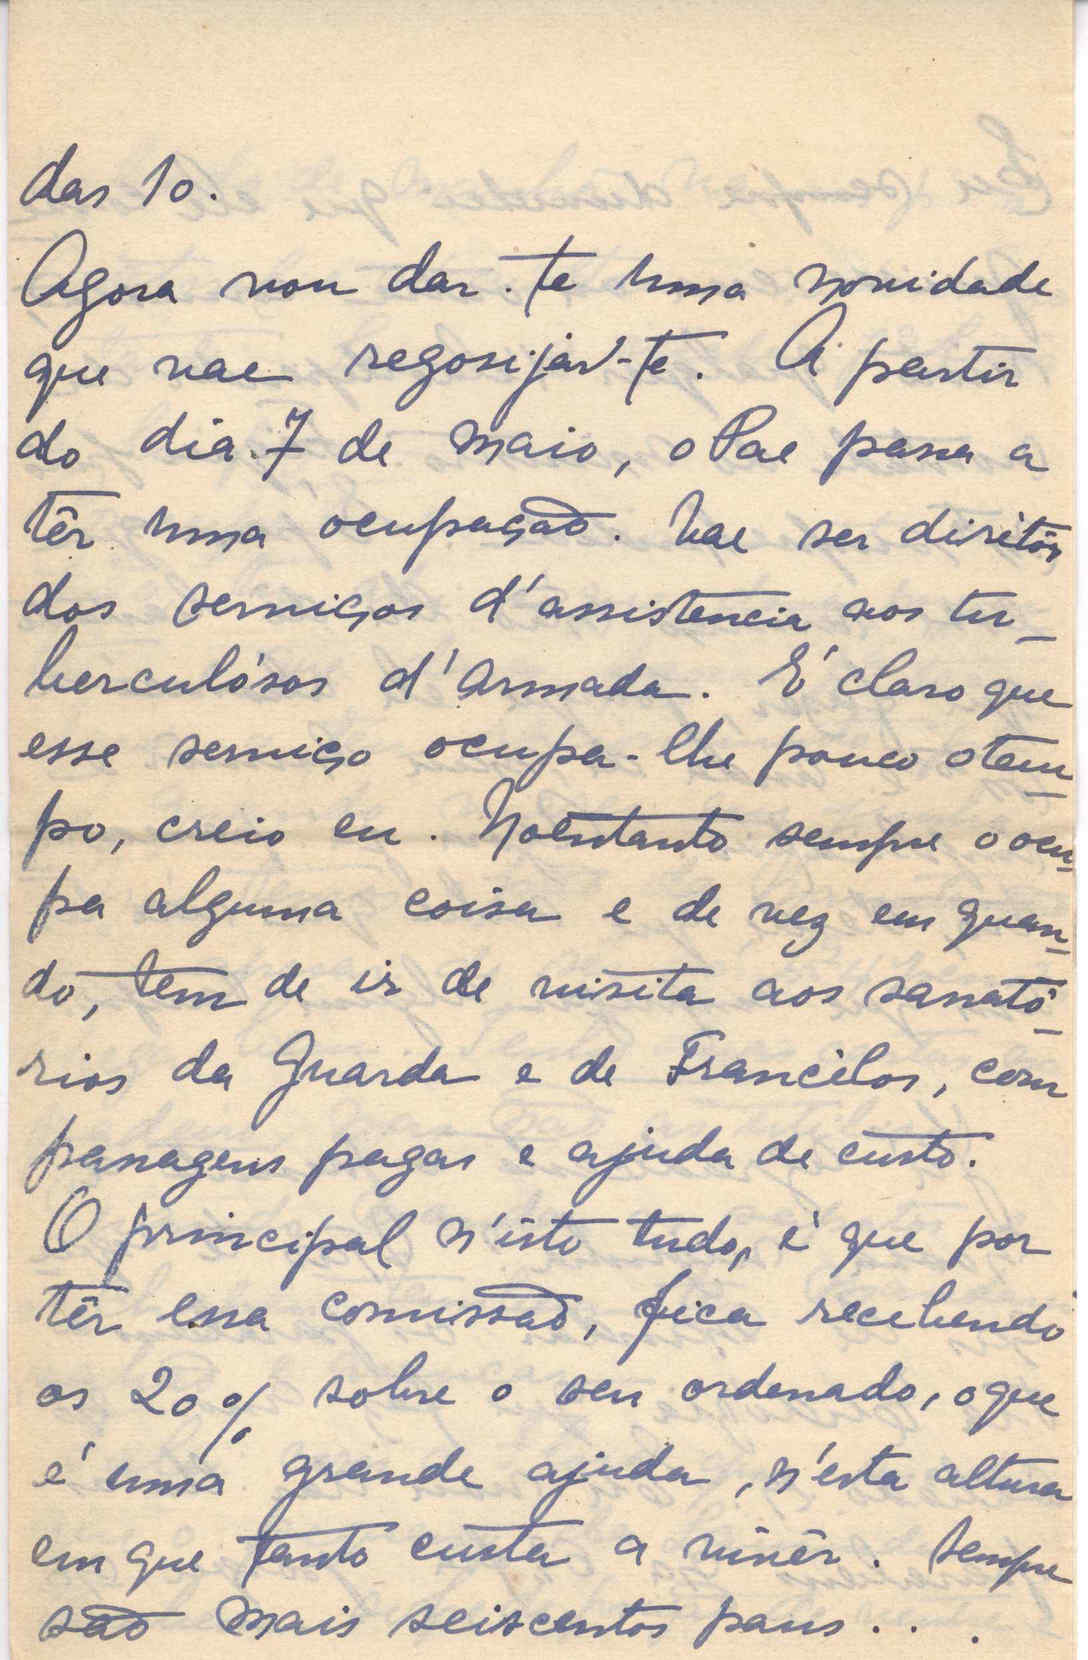 das 10.
Agora vou dar-te uma novidade
que vae regosijar-te. A partir
do dia 7 de maio, o Pae passa a
têr uma ocupação. Vae ser diretôr
dos serviços d'assistencia aos tu-
berculósos d'Armada. É claro que
esse serviço ocupa-lhe pouco o tem-
po, creio eu. No entanto sempre o ocu-
pa alguma coisa e de vez em quan-
do, tem de ir de visita aos sanató-
rios da Guarda e de Francêlos, com
passagens pagas e ajuda de custo.
O principal n'isto tudo, é que por
têr essa comissão, fica recebendo
os 20% sobre o seu ordenado, o que
é uma grande ajuda, n'esta altura
em que tanto custa a vivêr. Sempre
são mais seiscentos paus...